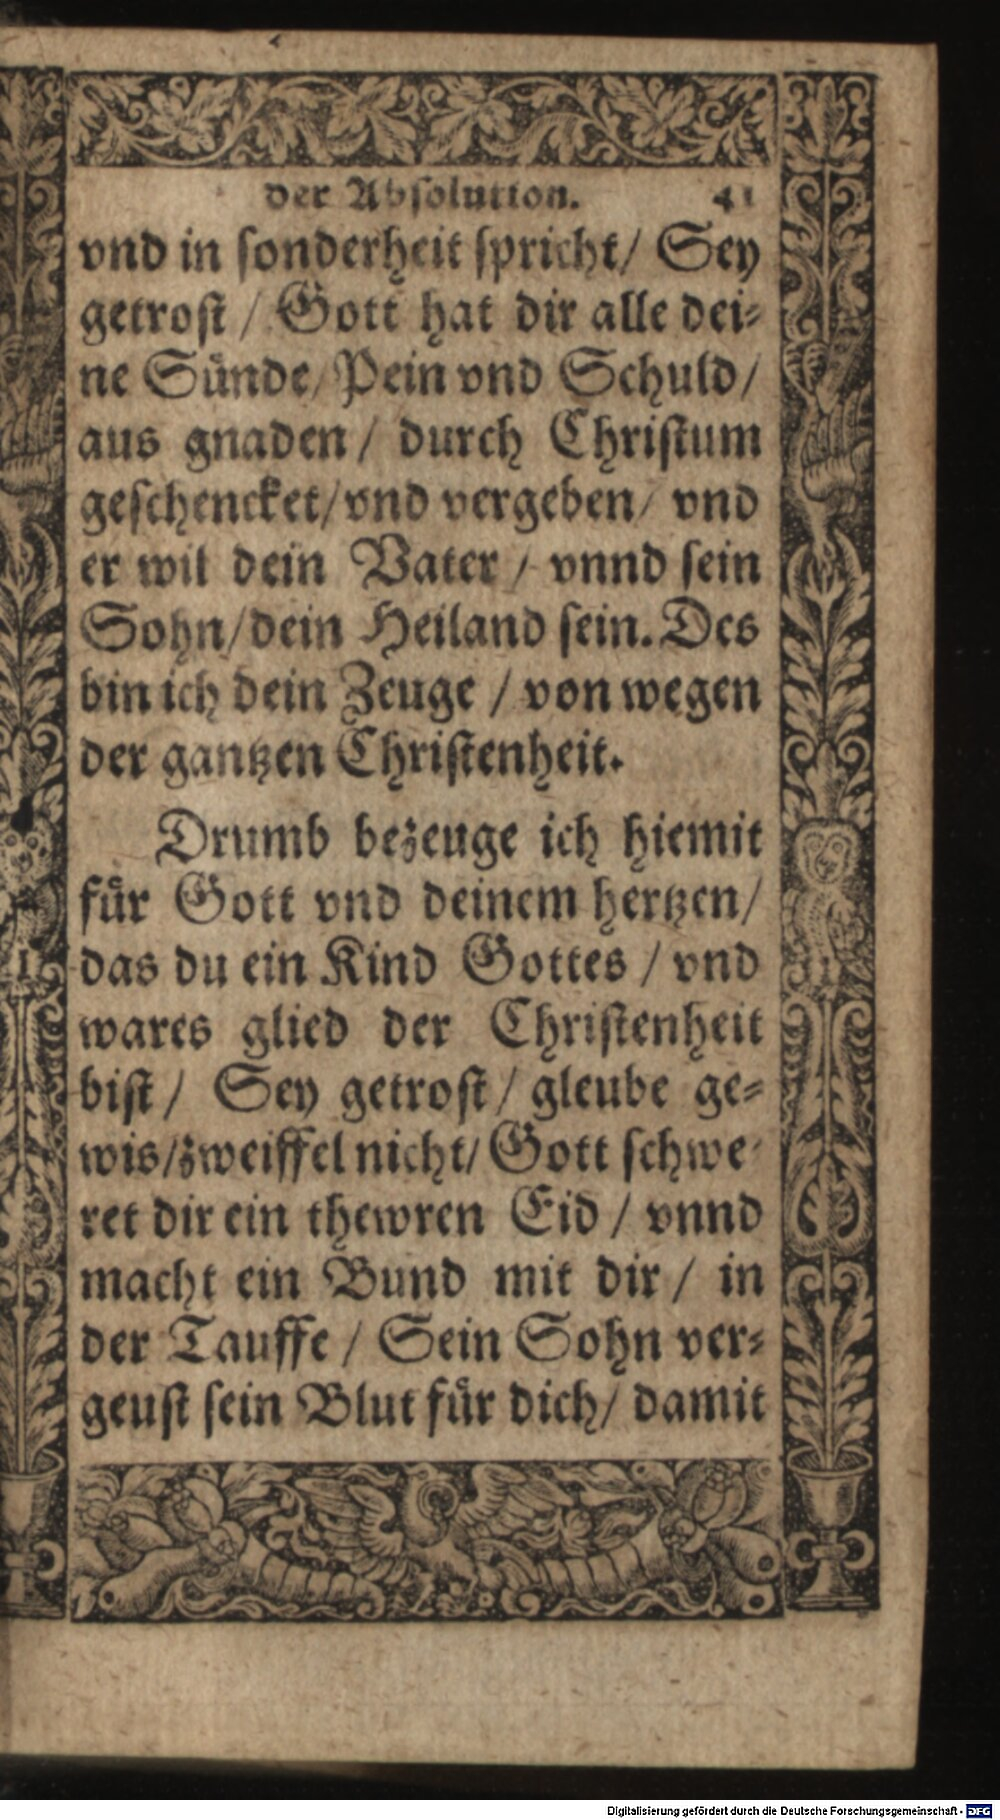 der Absolution. 41
vnd in ſonderheit ſpricht/ Sey
getroſt / Gott hat dir alle dei-
ne Suͤnde/ Pein vnd Schuld/
aus gnaden / durch Chriſtum
geſchencket/ vnd vergeben/ vnd
er wil dein Vater / vnnd ſein
Sohn/ dein Heiland ſein. Des
bin ich dein Zeuge / von wegen
der gantzen Chriſtenheit.
Drumb bezeuge ich hiemit
fuͤr Gott vnd deinem hertzen/
das du ein Kind Gottes / vnd
wares glied der Chriſtenheit
biſt/ Sey getroſt/ gleube ge-
wis/ zweiffel nicht/ Gott ſchwe-
ret dir ein thewren Eid / vnnd
macht ein Bund mit dir / in
der Tauffe / Sein Sohn ver-
geuſt ſein Blut fuͤr dich/ damit
Digitalisierung gefördert durch die Deutsche Forschungsgemeinschaft - DFG